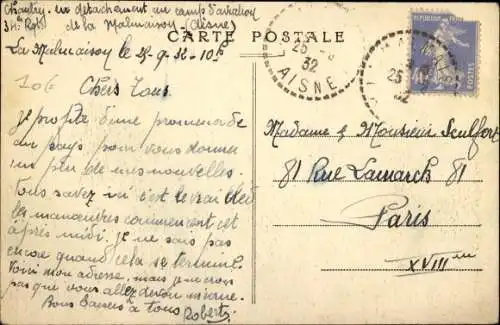 en détachement au camp d'aviation
de la Malmaison (Aisne)
CARTE POSTALE
La Malmaison le 25-9-32-10h
Chers Tous
je profite d'une promenade
au pays pour vous donner
un peu de mes nouvelles.
Tous savez ici c'est le vrai bled
les manœuvres commencent cet
après midi. je ne sais pas
encore quand cela se termine.
Voici mon adresse. mais je ne crois
pas que vous allez
Bons Baisers à tous
Robert
25
32
AISNE
25
32
POSTES
40c
Madame & Monsieur Seulfort
81 Rue Lamarck 81
Paris
XVIII me